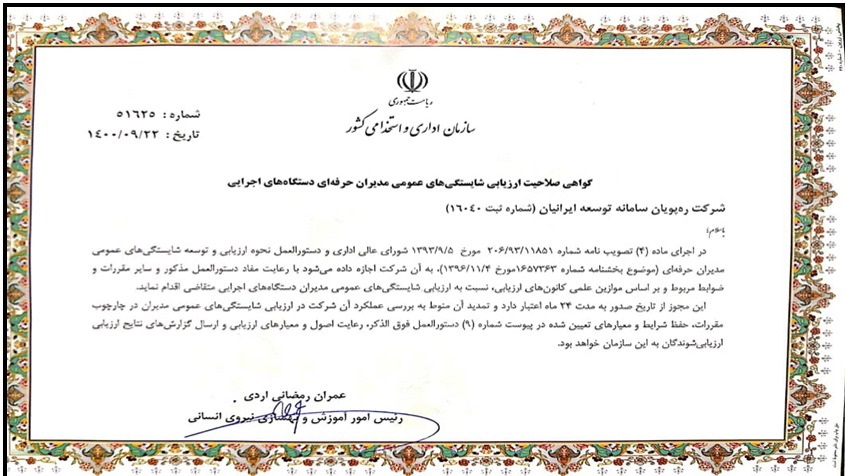 ریاست جمهوری
سازمان اداری و استخدامی کشور
شماره : ۵۱۶۲۵
تاریخ : ۱۴۰۰/۰۹/۲۲
گواهی صلاحیت ارزیابی شایستگی‌های عمومی مدیران حرفه‌ای دستگاه‌های اجرایی
شرکت ره‌پویان سامانه توسعه ایرانیان (شماره ثبت ۱۶۰۴۰)
باسلام؛
در اجرای ماده (۴) تصویب نامه شماره ۲۰۶/۹۳/۱۱۸۵۱ مورخ ۱۳۹۳/۹/۵ شورای عالی اداری و دستورالعمل نحوه ارزیابی و توسعه شایستگی‌های عمومی
مدیران حرفه‌ای (موضوع بخشنامه شماره ۱۶۵۷۳۶۳مورخ ۱۳۹۶/۱۱/۴)، به آن شرکت اجازه داده می‌شود با رعایت مفاد دستورالعمل مذکور و سایر مقررات و
ضوابط مربوط و بر اساس موازین علمی کانون‌های ارزیابی، نسبت به ارزیابی شایستگی‌های عمومی مدیران دستگاه‌های اجرایی متقاضی اقدام نماید.
این مجوز از تاریخ صدور به مدت ۲۴ ماه اعتبار دارد و تمدید آن منوط به بررسی عملکرد آن شرکت در ارزیابی شایستگی‌های عمومی مدیران در چارچوب
مقررات، حفظ شرایط و معیارهای تعیین شده در پیوست شماره (۹) دستورالعمل فوق الذکر، رعایت اصول و معیارهای ارزیابی و ارسال گزارش‌های نتایج ارزیابی
ارزیابی‌شوندگان به این سازمان خواهد بود.
عمران رمضانی اردی
رئیس امور آموزش و بهسازی نیروی انسانی